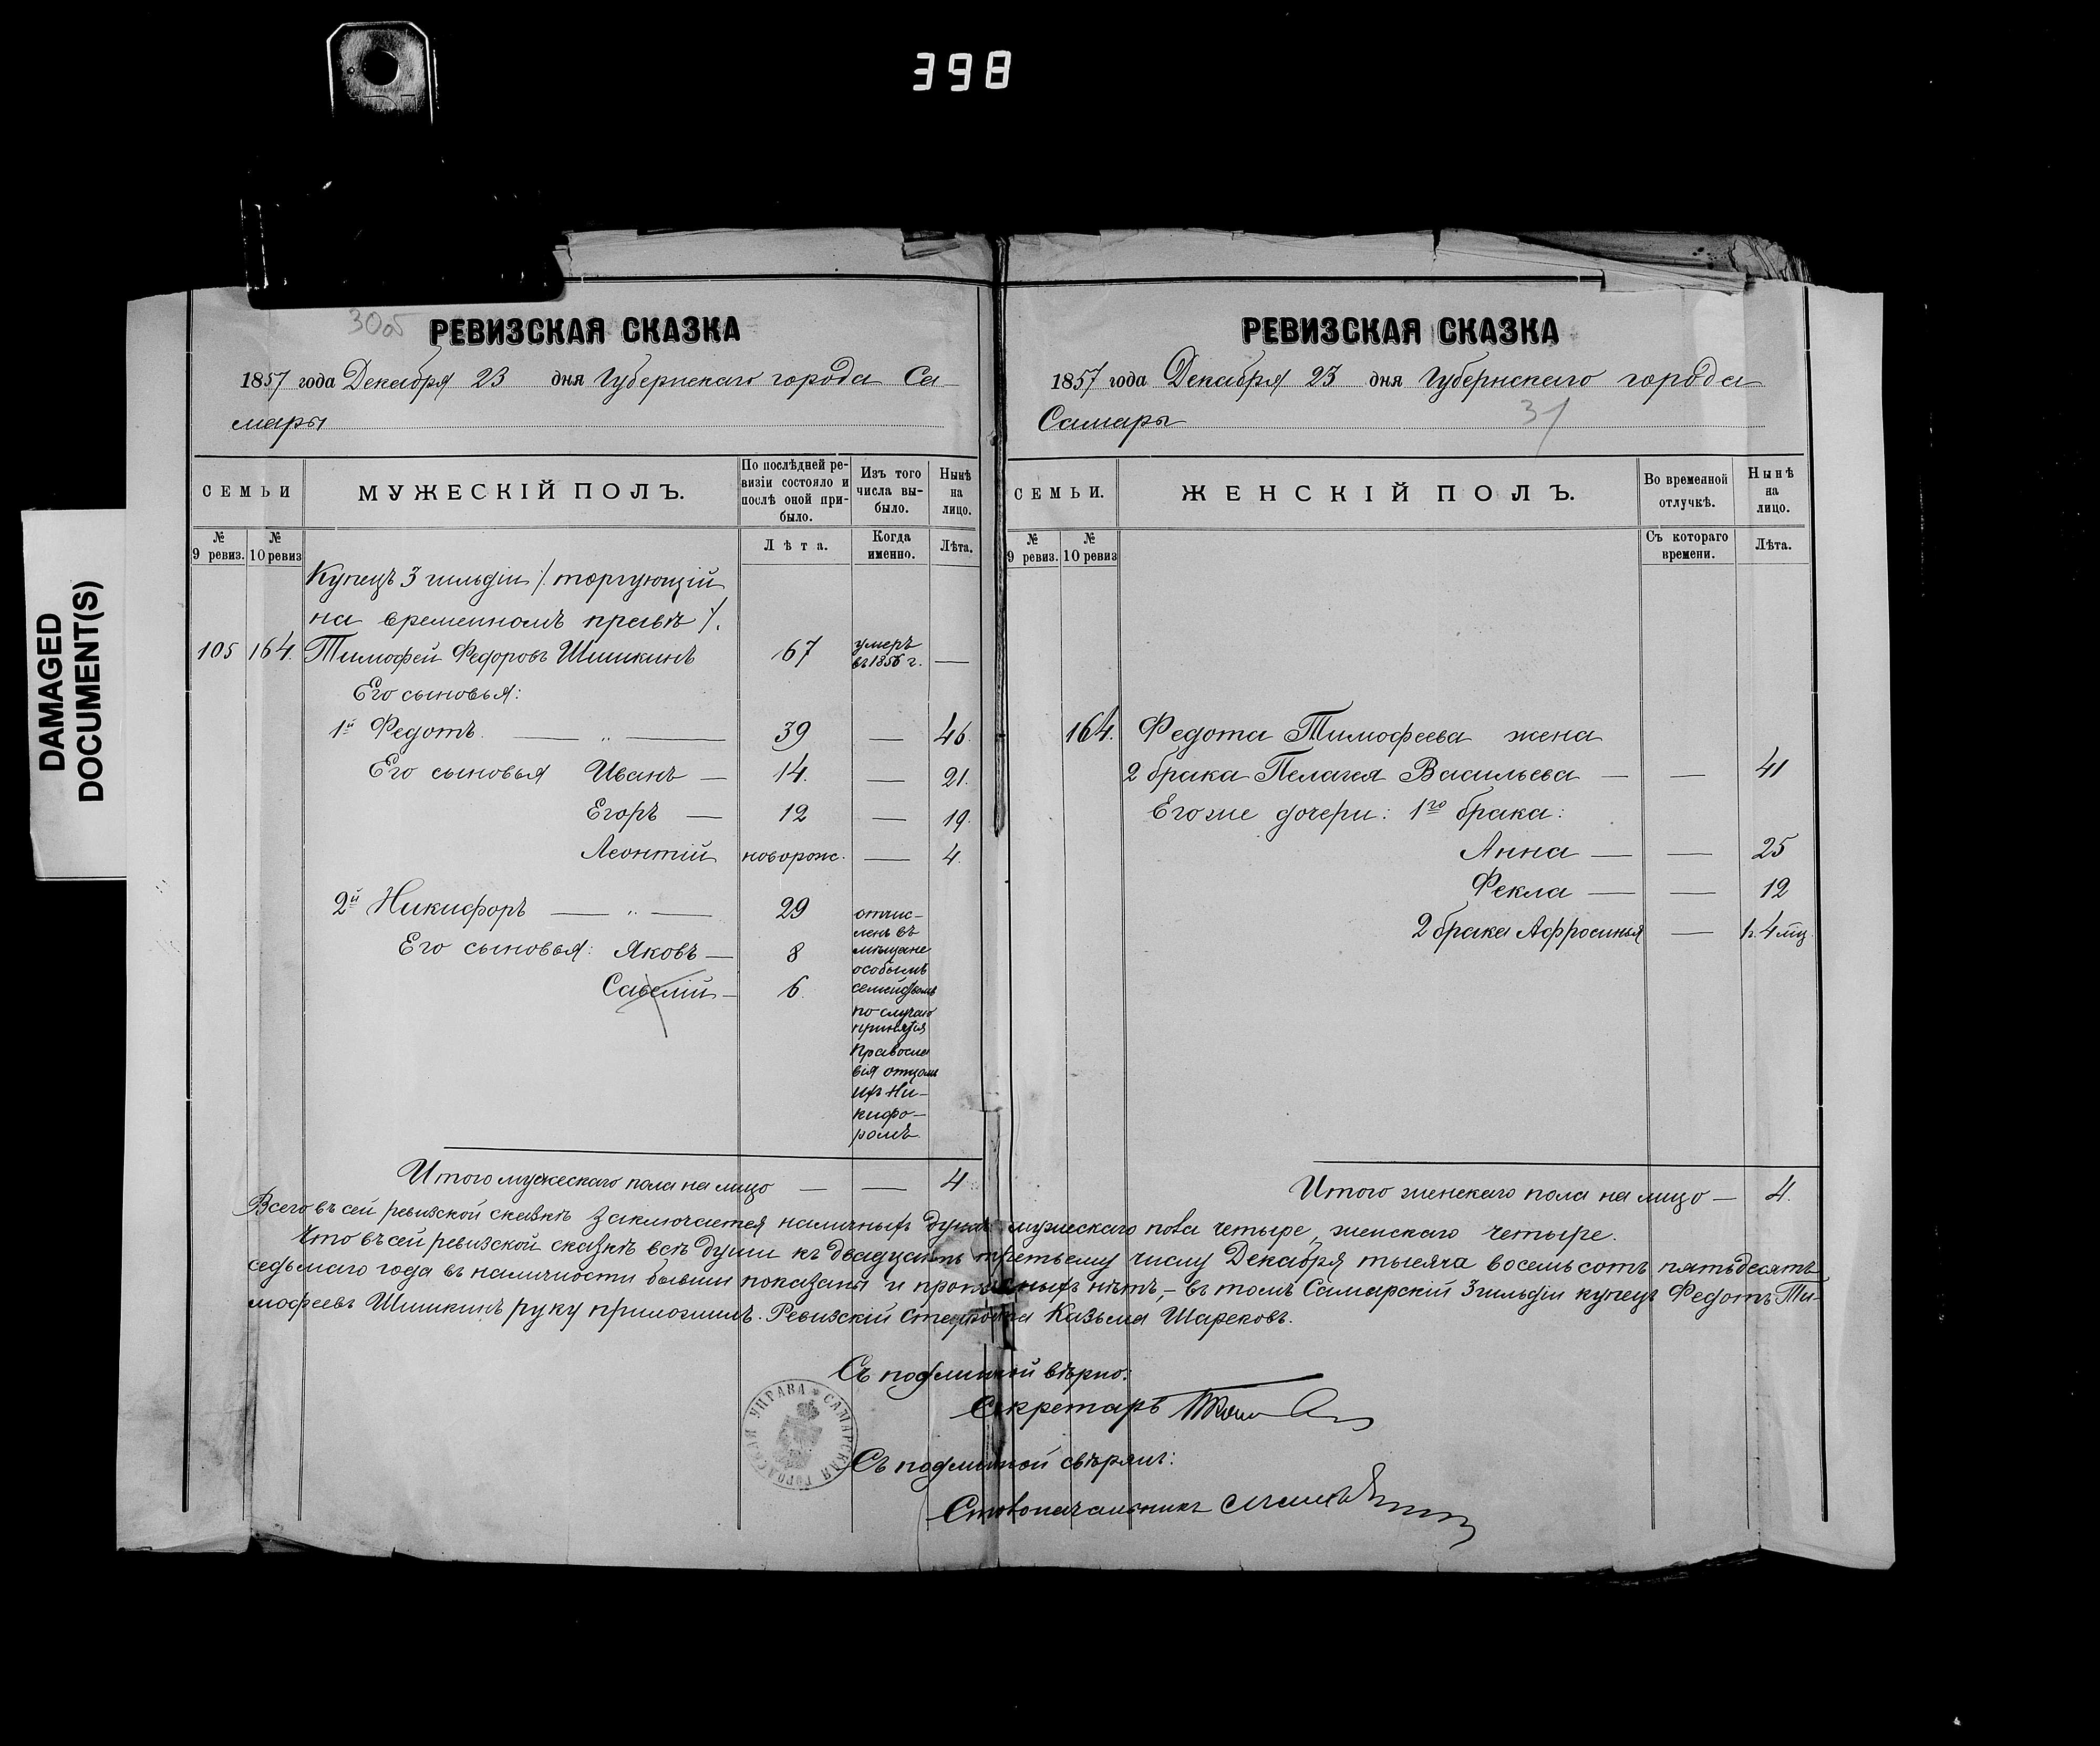 398
DAMAGED
DOCUMENT(S)
30об
РЕВИЗСКАЯ СКАЗКА
1857 года Декабря 23 дня Губернскаго города Са-
мары
СЕМЬИ
МУЖЕСКІЙ ПОЛЪ.
По послѣдней ре-
визіи состояло и
послѣ оной при-
было.
Изъ того
числа вы-
было.
Нынѣ
на
лицо.
№ 9 ревиз.
№ 10 ревиз
Лѣта.
Когда
именно.
Лѣта.
Купецъ 3 гильдіи /: торгующій
на временномъ правѣ :/.
105 164. Тимофей Федоровъ Шишкинъ 67 умеръ въ 1856 г. —
Его сыновья:
1й Федотъ. — „ — 39 — 46.
Его сыновья Иванъ — 14. — 21.
Егоръ — 12 — 19.
Леонтій новорож. — 4.
2й Никифоръ — „ — 29
Его сыновья: Яковъ — 8
Савелій — 6.
отчис-
ленъ въ
мѣщане
особымъ
семействомъ
по случаю
принятія
Правосла
вія отцомъ
ихъ Ни-
кифо-
ромъ.
Итого мужескаго пола на лицо — — 4.
РЕВИЗСКАЯ СКАЗКА
1857 года Декабря 23 дня Губернскаго города
Самары
31
СЕМЬИ.
ЖЕНСКІЙ ПОЛЪ.
Во временной
отлучкѣ.
Нынѣ
на
лицо.
№ 9 ревиз.
№ 10 ревиз
Съ котораго
времени.
Лѣта.
164. Федота Тимофеева жена
2 брака Пелагея Васильева — — 41
Его же дочери: 1го брака:
Анна — — 25
Фекла — — 12
2 брака Афросинья — 1г. 4 мц.
Итого женскаго пола на лицо — 4.
Всего въ сей ревизской сказкѣ заключается наличныхъ душъ мужескаго пола четыре, женскаго четыре.
Что въ сей ревизской сказкѣ всѣ души къ двадцать третьему числу Декабря тысяча восемьсотъ пятьдесятъ
седьмаго года въ наличности бывши показаны и прописныхъ нѣтъ, – въ томъ Самарскій 3 гильдіи купецъ Федотъ Ти-
мофеевъ Шишкинъ руку приложилъ. Ревизскій Староста Казьма Шарековъ.
Съ подлинной вѣрно:
Секретарь
Съ подлинной свѣрялъ:
Столоначальникъ
САМАРСКАЯ ГОРОДСКАЯ УПРАВА